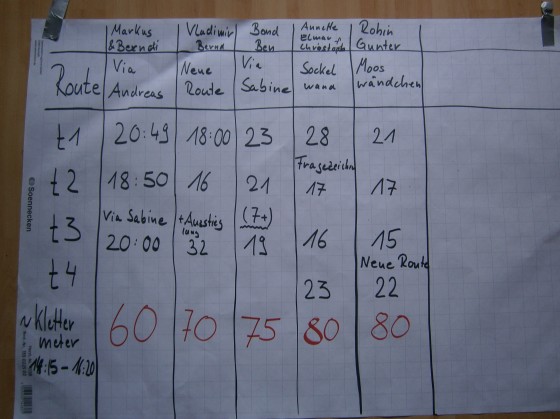 Markus Vladimir Bond Annette Robin
& Berndi Bernd Ben Elmar Gunter
Christoph
Route Via Neue Via Sockel Moos
Andreas Route Sabine wand wändchen
t1 20:49 18:00 23 28 21
Fragezeichn
t2 18:50 16 21 17 17
Via Sabine + Ausstieg (7+)
lang
t3 20:00 32 19 16 15
Neue Route
t4 23 22
~ Kletter 60 70 75 80 80
meter
- 16:20
Soennecken